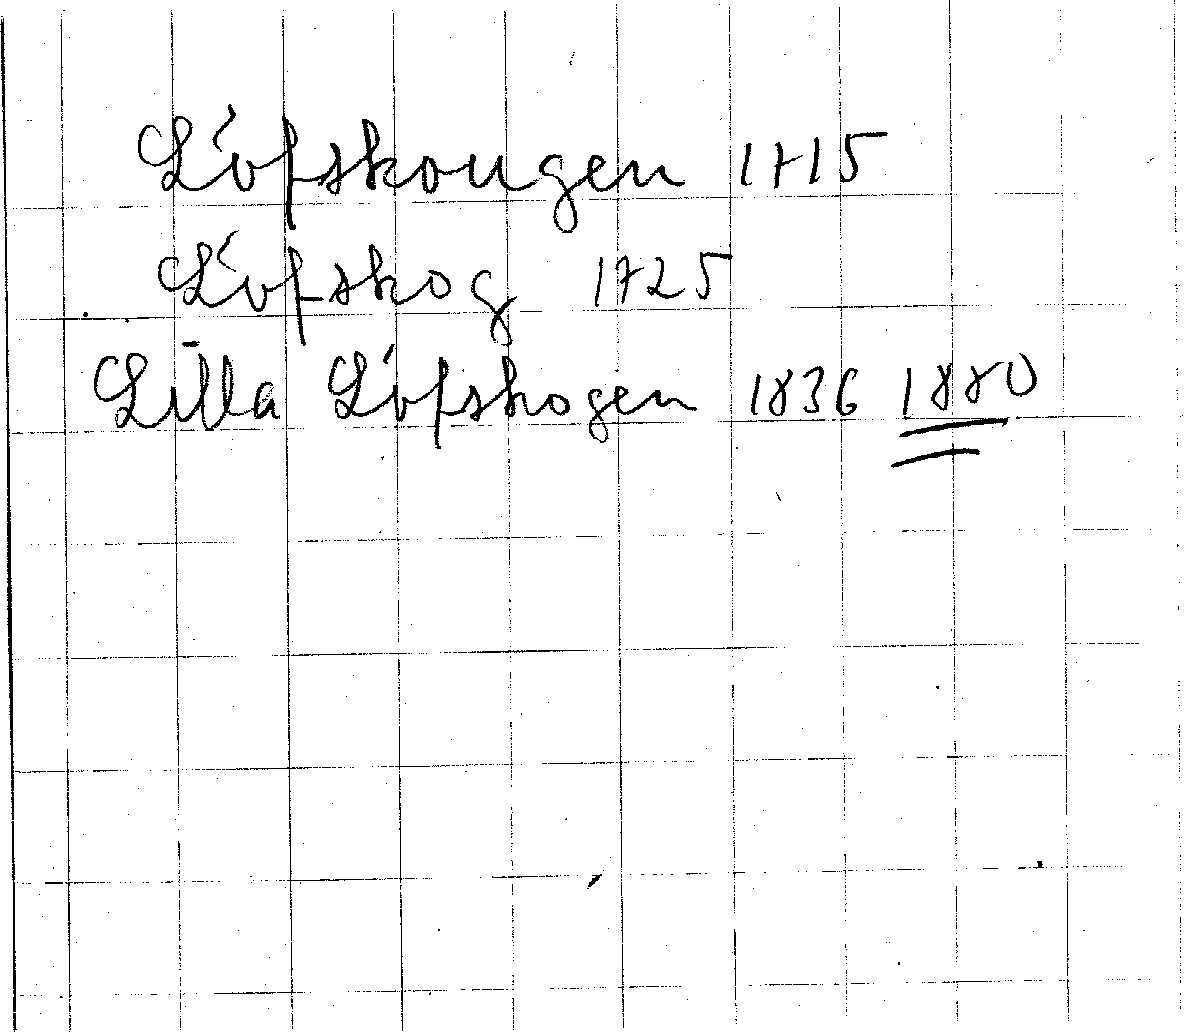 Löfskougen 1715
Löfskog 1725
Lilla Löfskogen 1836 1880